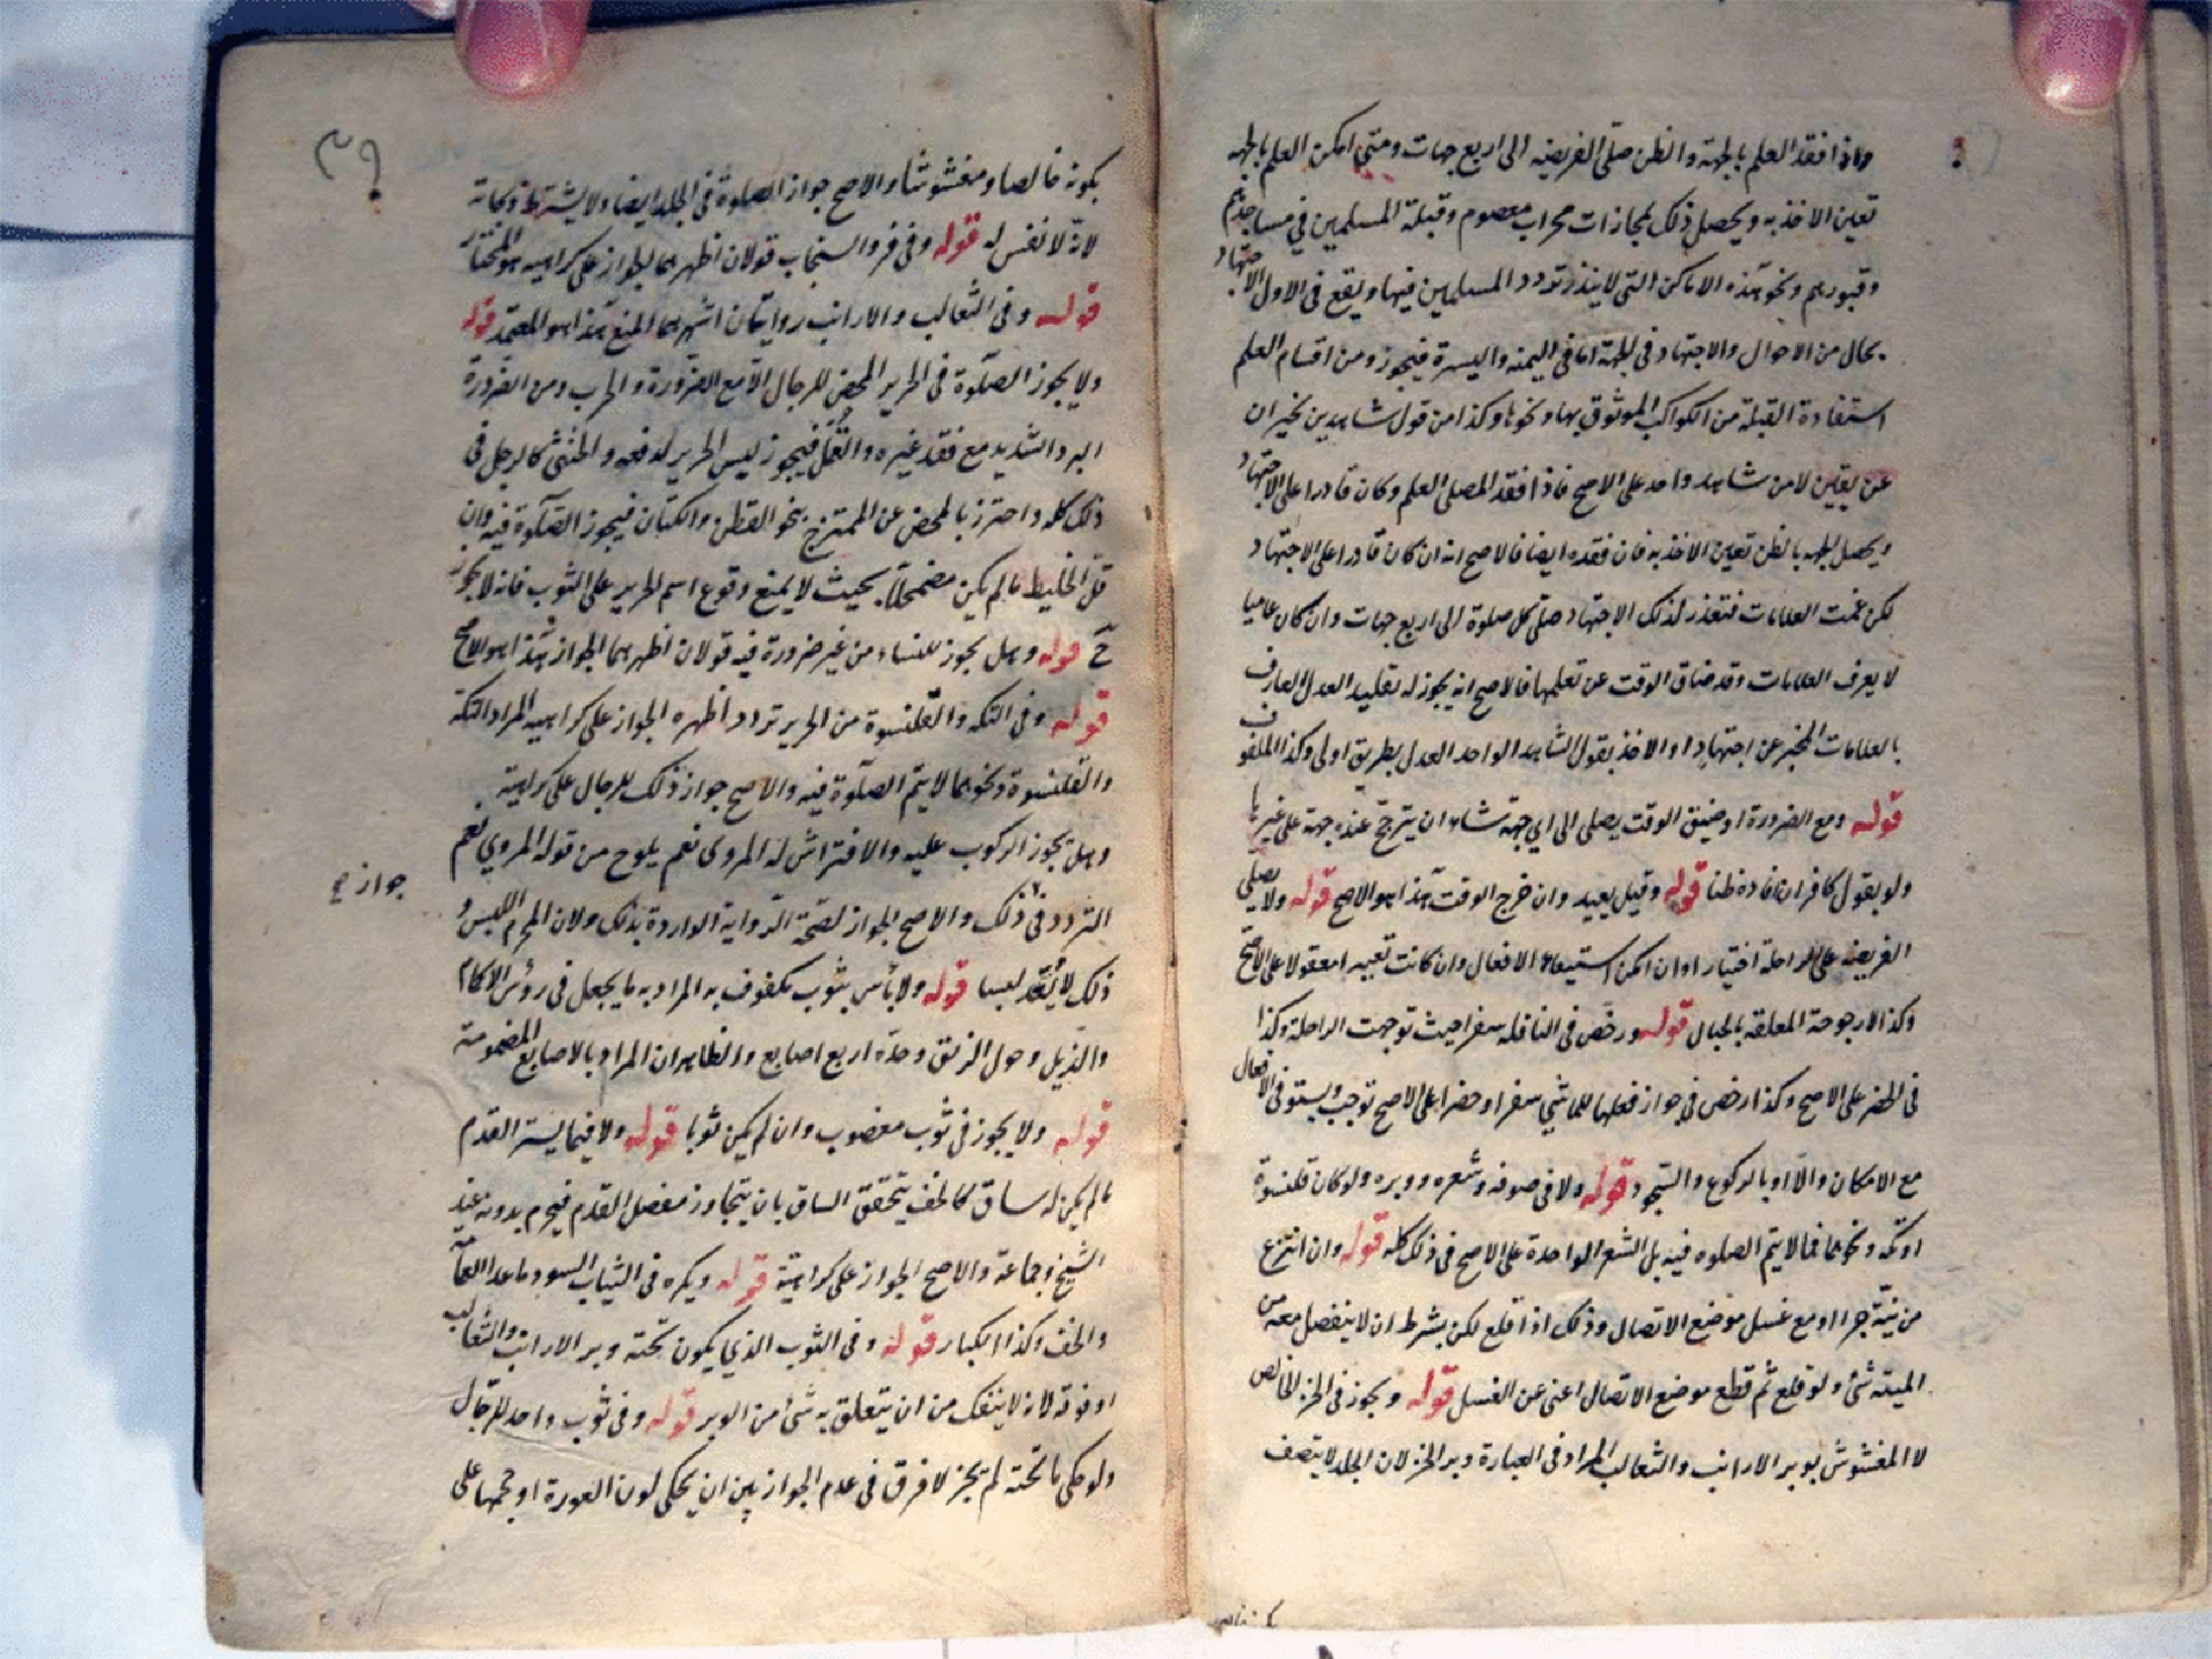 واذا فقد العلم بالجهة والظن صلى الفريضه الى اربع جهات ومتى امكن العلم بالجهه
تعين الاخذ به ويحصل ذلك بمجازات محراب معصوم وقبلة المسلمين في مساجدهم
وقبورهم ونحو هذه الاماكن التى لا ينذر تردد المسلمين فيها ويقع فى الاول الاجتهاد
بحال من الاحوال والاجتهاد فى الجهة اما فى اليمنه واليسرة فيجوز ومن اقسام العلم
استفادة القبلة من الكواكب الموثوق بها ونحوها وكذا من قول شاهدين يخبران
عن يقين لا من شاهد واحد على الاصح فاذا فقد المصلى العلم وكان قادرا على الاجتهاد
ويحصل لجهه بالظن تعين الاخذ به فان فقده ايضا فالاصح انه ان كان قادرا على الاجتهاد
لكن غمت العلامات فتعذر لذلك الاجتهاد صلى كل صلوة الى اربع جهات وان كان عاميا
لا يعرف العلامات وقد ضاق الوقت عن تعلمها فالاصح انه يجوز له تقليد العدل العارف
بالعلامات المخبر عن اجتهاد او الاخذ بقول الشاهد الواحد العدل بطريق اولى وكذا المكفوف
قوله ومع الضرورة او ضيق الوقت يصلى الى اي جهة شاء ان يترجح عنده جهة على غيرها
ولو بقول كافر ان افاده ظنا قوله وقيل يعيد وان خرج الوقت هذا هو الاصح قوله ولا يصلى
الفريضه على الراحلة اختيارا وان امكن استيفاء الافعال وان كانت تعبيرا معقولا على الاصح
وكذا الارجوحة المعلقه بالحبال قوله ورخص فى النافله سفرا حيث توجهت الراحلة وكذا
فى الحضر على الاصح وكذا رخص فى جواز فعلها للماشي سفرا وحضرا على الاصح توجب ويستوفى الافعال
مع الامكان والا اوبالركوع والسجود قوله ولا فى صوفه وشعره ووبره ولو كان قلنسوة
او تكه ونحوهما مما لا يتم الصلوه فيه بل الشعر الواحدة على الاصح فى ذلك كله قوله وان انتزع
من ميتة جزا او مع غسل موضع الاتصال وذلك اذا قلع لكن بشرط ان لا ينفصل معه من
الميته شئ ولو قلع ثم قطع موضع الاتصال اغنى عن الغسل قوله ويجوز فى الخز الخالص
لا المغشوش بوبر الارانب والثعالب المراد فى العبارة وبر الخز لان الجلد لا يتصف
بكونه خالصا ومغشوشا والاصح جواز الصلوة فى الجلد ايضا ولا يشترط ذكاته
لانه لا نفس له قوله وفى فرو السنجاب قولان اظهرهما الجواز على كراهيه هو المختار
قوله وفى الثعالب والارانب روايتان اشهرهما المنع هذا هو المعتمد قوله
ولا يجوز الصلوة فى الحرير المحض للرجال الا مع الضرورة والحرب ومن الضرورة
البرد الشديد مع فقد غيره والقمل فيجوز لبس الحرير لدفعه والخنثى كالرجل فى
ذلك كله واحترز بالمحض عن الممتزج بنحو القطن والكتان فيجوز الصلوة فيه وان
قل الخليط ما لم يكن مضمحلا بحيث لا يمنع وقوع اسم الحرير على الثوب فانه لا يجوز
ح قوله وهل يجوز للنساء من غير ضرورة فيه قولان اظهرهما الجواز هذا هو الاصح
قوله وفى التكه والقلنسوة من الحرير تردد اظهره الجواز على كراهيه المراد التكة
والقلنسوة ونحوهما لا يتم الصلوة فيه والاصح جواز ذلك للرجال على كراهية
وهل يجوز الركوب عليه والافتراش له المروى نعم يلوح من قوله المروي نعم
التردد فى ذلك والاصح الجواز لصحة الرواية الواردة بذلك ولان المحرم اللبس و
جواز ح
ذلك لا يعد لبسا قوله ولا بأس بثوب مكفوف به المراد به ما يجعل فى رؤس الاكمام
والذيل وحول الزيق وحده اربع اصابع والظاهر ان المراد بالاصابع المضمومة
قوله ولا يجوز فى ثوب مغصوب وان لم يكن ثوبا قوله ولا فيما يستر القدم
ما لم يكن له ساق كالخف يتحقق الساق بان يتجاوز مفصل القدم فيحرم بدونه عند
الشيخ وجماعة والاصح الجواز على كراهية قوله ويكره فى الثياب السود ما عدا العمامة
والخف وكذا الكبار قوله وفى الثوب الذي يكون تحته وبر الارانب والثعالب
او فوقه لانه لا ينفك من ان يتعلق به شئ من الوبر قوله وفى ثوب واحد للرجال
ولو حكى ما تحته لم يجز لا فرق فى عدم الجواز بين ان يحكى لون العورة او حجمها على